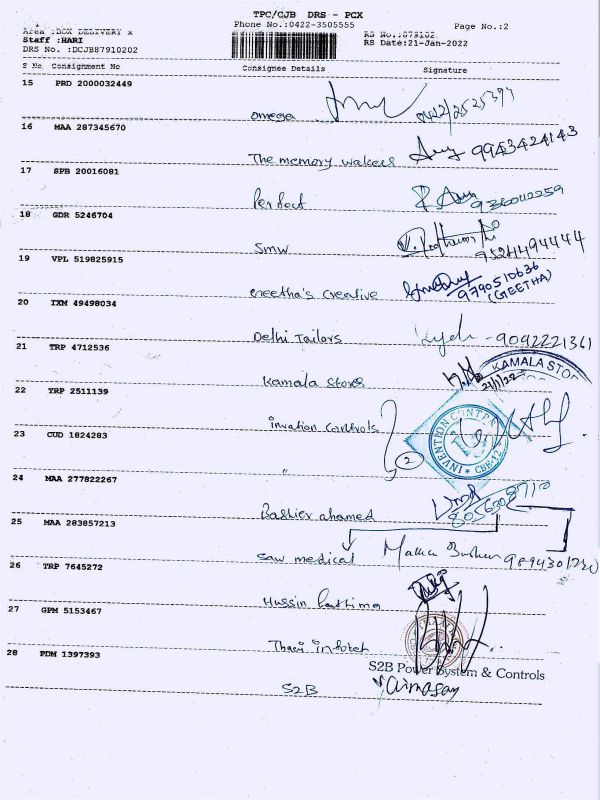 TPC/CJB DRS - PCX
Phone No.:0422-3505555
Page No.:2
Area :BOX DELIVERY x
Staff :HARI
DRS No. :DCJB87910202
RS No.:879102
RS Date:21-Jan-2022
S No. Consignment No Consignee Details Signature
15 PRD 2000032449
omega
16 MAA 287345670
The memory walkers 9943424143
17 SPB 20016081
Perfect
18 GDR 5246704
SMW 9524494444
19 VPL 519825915
creetha's creative 9790510636
(GEETHA)
20 IXM 49498034
Delhi Tailors - 9092221361
21 TRP 4712536
Kamala Stores KAMALA STO
21/1/22
22 TRP 2511139
invation controls INVENTION CONTR
CBE-12
23 CUD 1824283
" 2
24 MAA 277822267
Bashier ahamed 8056308710
25 MAA 283857213
Saw medical 9894301230
26 TRP 7645272
Hussin fathima
27 GPM 5153467
Thavi infotech
28 PDM 1397393
S2B Power System & Controls
S2B